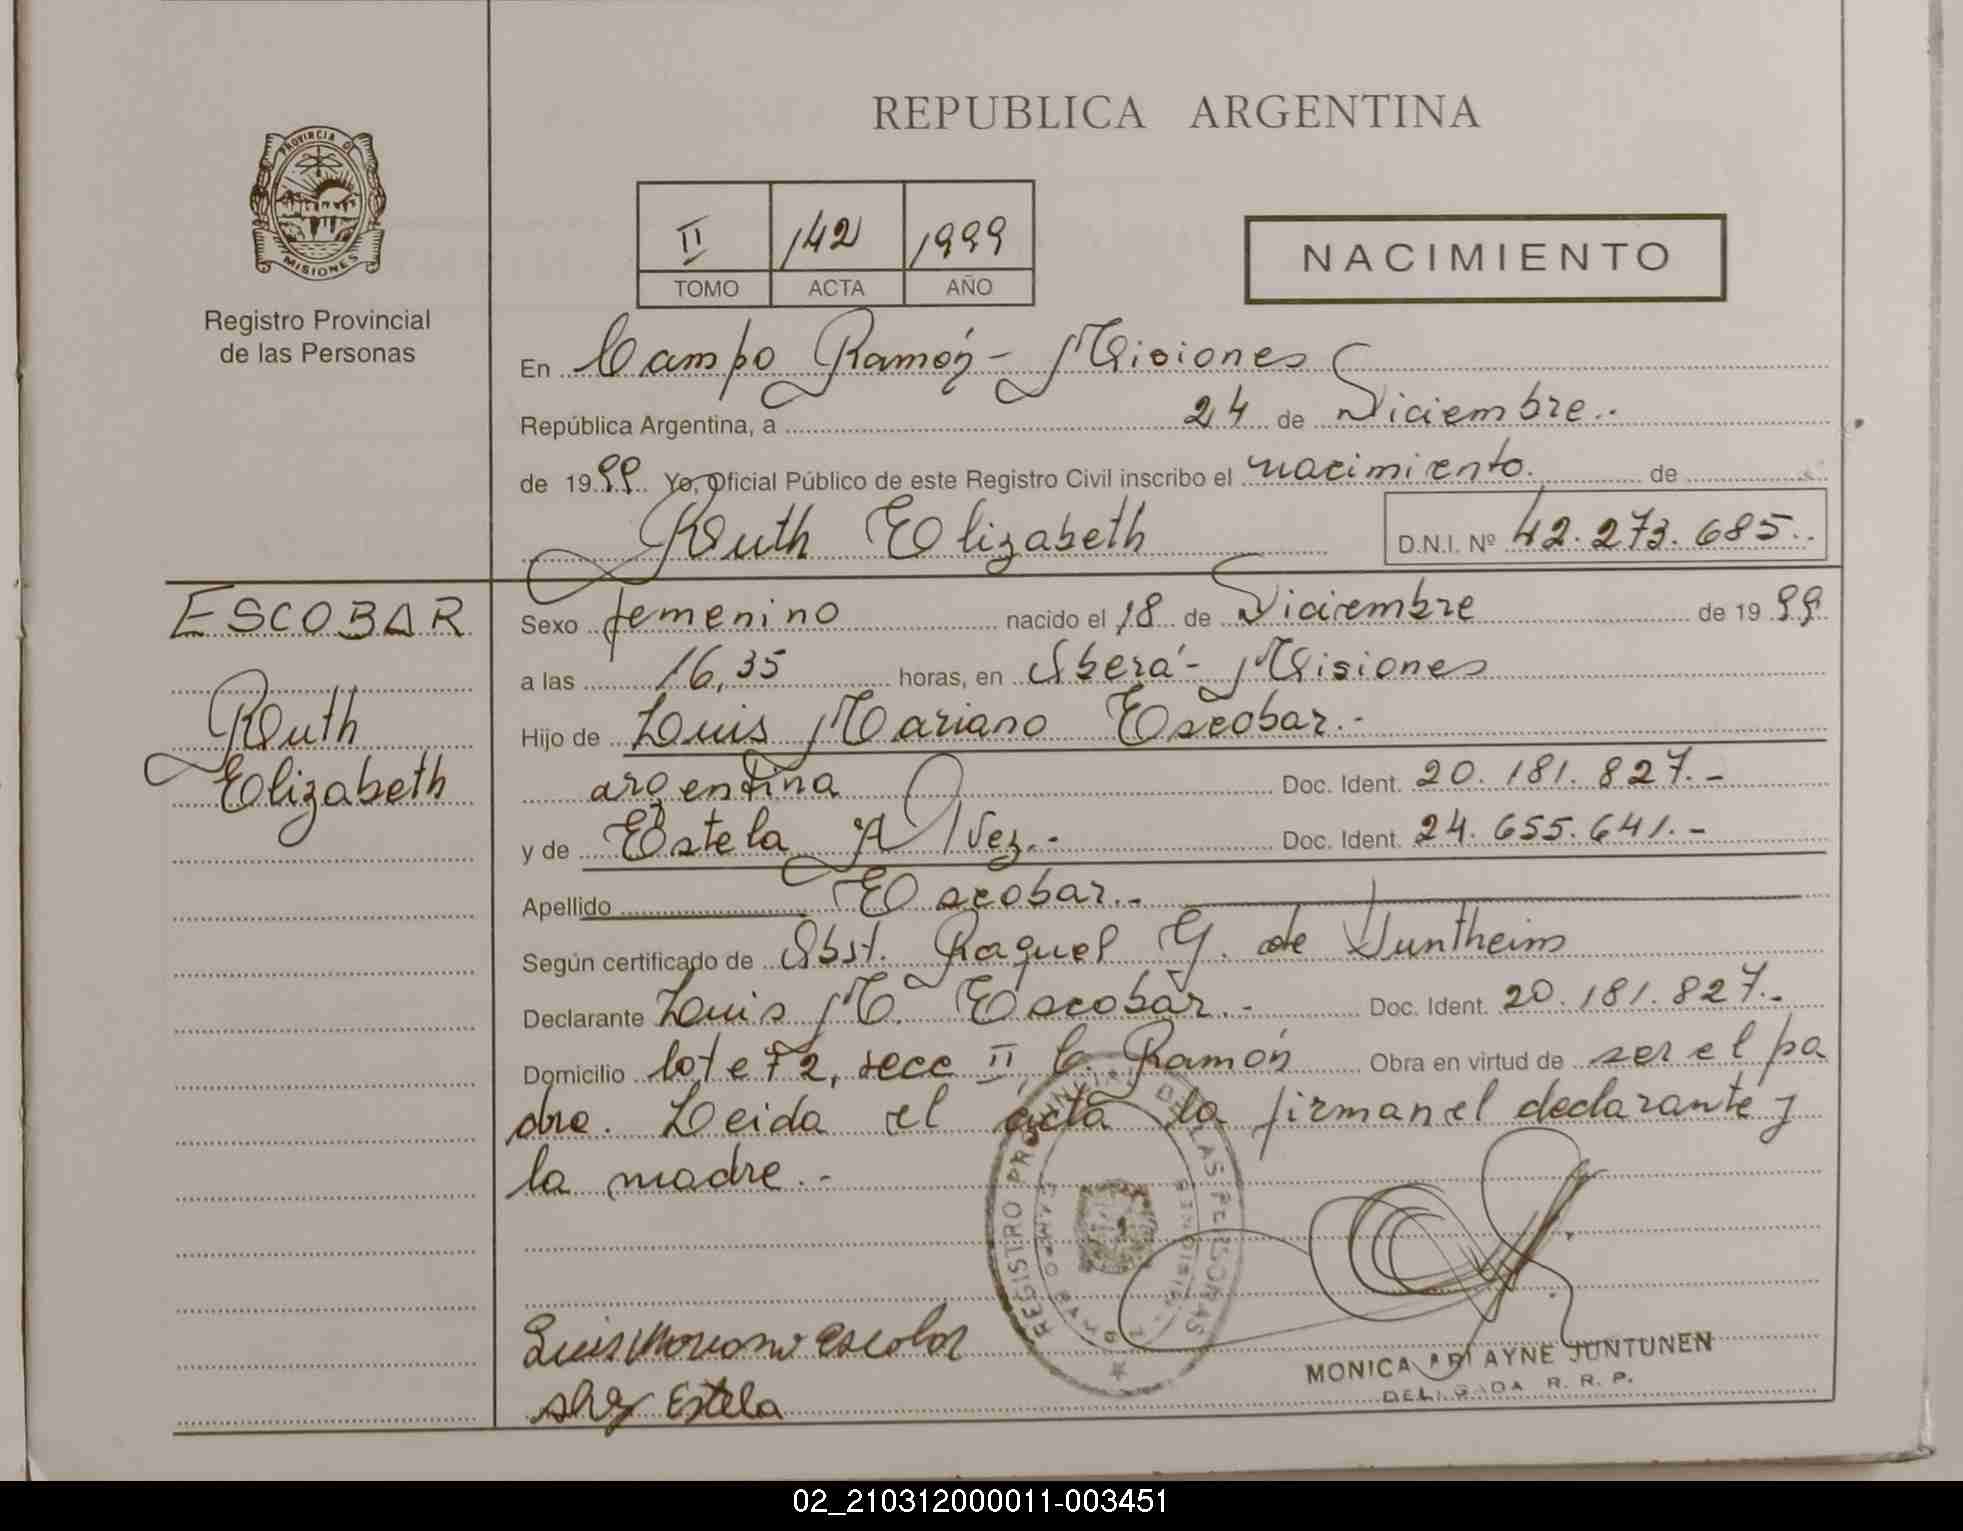 REPUBLICA ARGENTINA
PROVINCIA DE
MISIONES
Registro Provincial
de las Personas
II 142 1999
TOMO ACTA AÑO
NACIMIENTO
En Campo Ramón - Misiones
República Argentina, a 24 de Diciembre..
de 1999 Yo, Oficial Público de este Registro Civil inscribo el nacimiento. de
Ruth Elizabeth D.N.I. Nº 42.273.685..
ESCOBAR
Ruth
Elizabeth
Sexo femenino nacido el 18 de Diciembre de 1999
a las 16,35 horas, en Oberá - Misiones
Hijo de Luis Mariano Escobar.-
argentina Doc. Ident. 20.181.827.-
y de Estela Alvez.- Doc. Ident. 24.655.641.-
Apellido Escobar.-
Según certificado de Obst. Raquel G. de
Declarante Luis M. Escobar.- Doc. Ident. 20.181.827.-
Domicilio lote 72, secc II, C. Ramón Obra en virtud de ser el pa
dre. Leida el acta la firman el declarante y
la madre.-
REGISTRO PROVINCIAL DE LAS PERSONAS
CAMPO RAMON
MISIONES
Luis Mariano Escobar
Estela
MONICA JUNTUNEN
DELEGADA R. R. P.
02_210312000011-003451